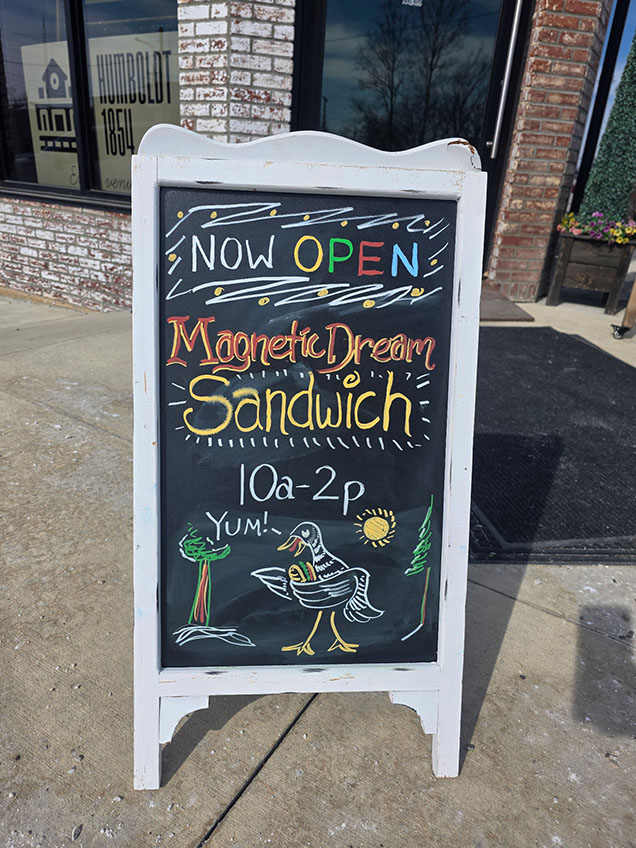 HUMBOLDT
1854
NOW OPEN
Magnetic Dream
Sandwich
10a-2p
YUM!